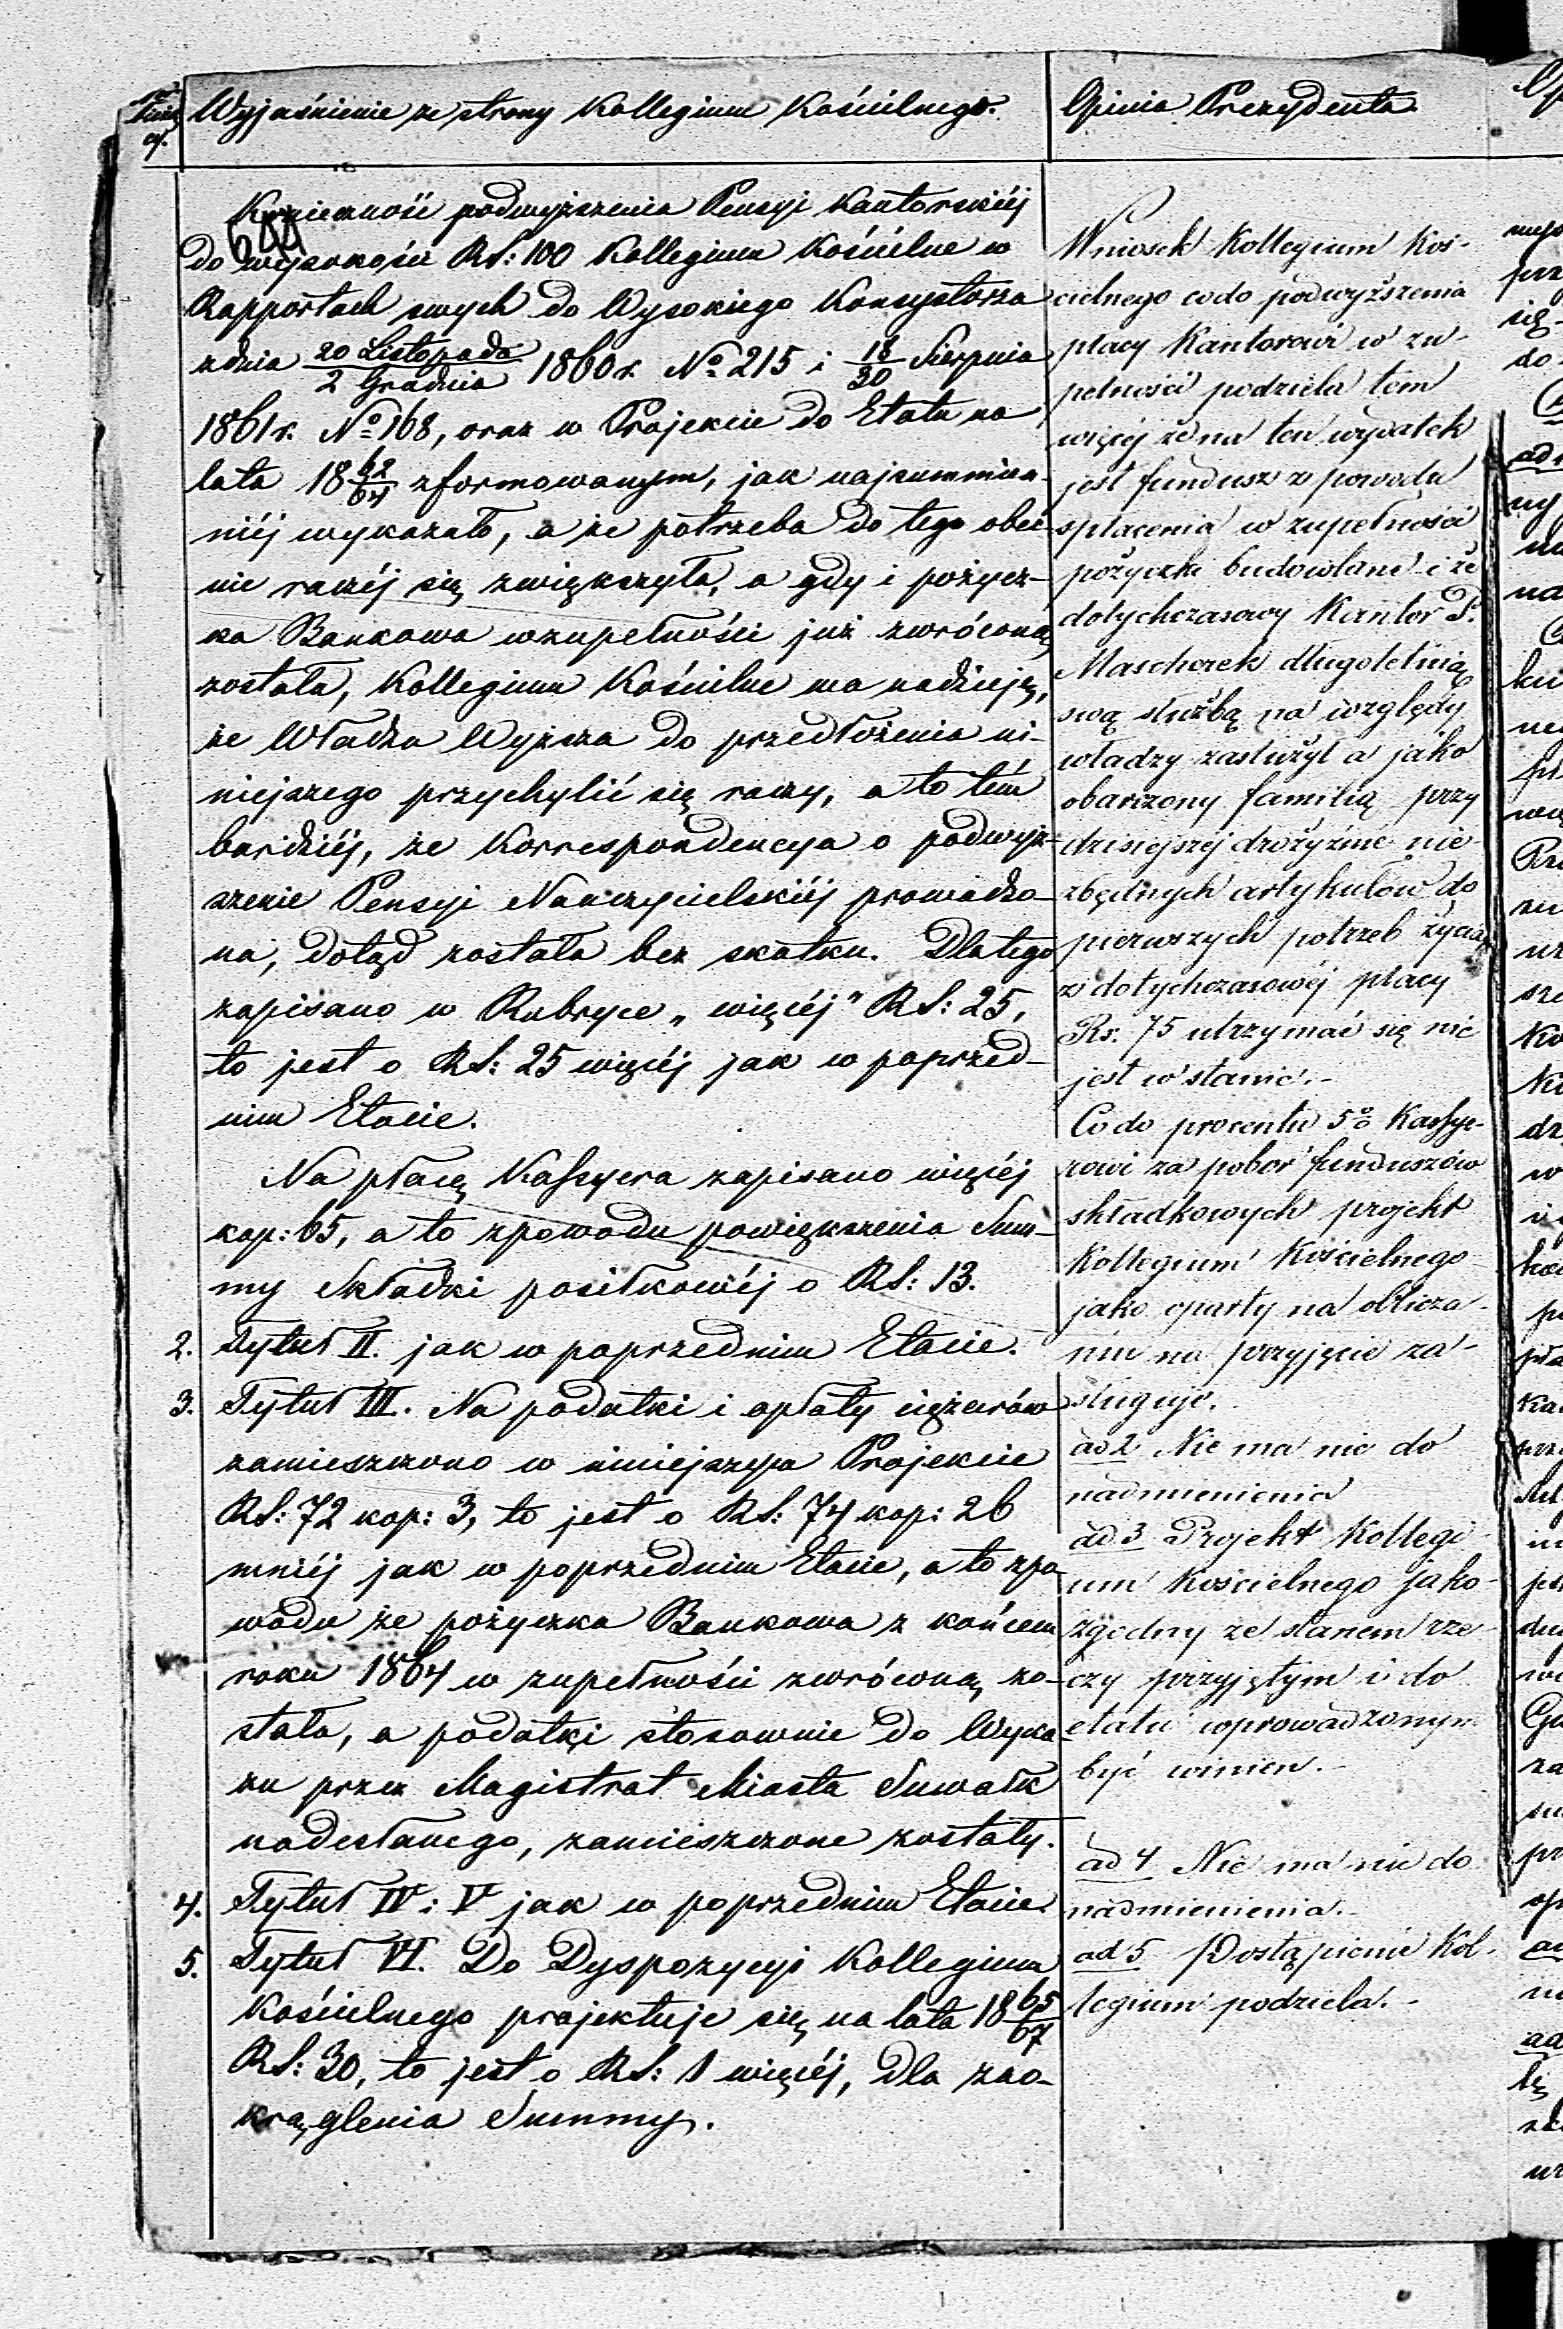 Wyjaśnienie ze strony Kollegium Kościelnego.
Konieczność podwyższenia Pensyi Kantorskiéj
644
do wysokości RS: 100 Kollegium Kościelne w
Rapportach swych do Wysokiego Konsystorza
zdnia 20 Listopada/2 Grudnia 1860 r. No 215 i 18/30 Sierpnia
1861 r. No 168, oraz w Projekcie do Etatu na
lata 18 62/64 zformowanym, jak najsummien-
niéj wykazało, a że potrzeba do tego obec-
nie raczéj się zwiększyła, a gdy i pożycz-
ka Bankowa wzupełności już zwróconą
została, Kollegium Kościelne ma nadzieję,
że Władza Wyższa do przedłożenia ni-
niejszego przychylić się raczy, a to tém
bardziéj, że Korrespondencya o podwyż-
szenie Pensyi Nauczycielskiéj prowadzo-
na, dotąd została bez skutku. Dlatego
zapisano w Rubryce „więcéj" RS: 25,
to jest o RS: 25 więcéj jak w poprzed-
nim Etacie.
Na płacę Kassyera zapisano więcéj
kop: 65, a to zpowodu powiększenia Sum-
my Składki posiłkowéj o RS: 13.
2. Tytuł II. jak w poprzednim Etacie.
3. Tytuł III. Na podatki i opłaty ciężarów
zamieszczono w niniejszym Projekcie
RS: 72 kop: 3, to jest o RS: 74 kop: 26
mniéj jak w poprzednim Etacie, a to zpo-
wodu że pożyczka Bankowa z końcem
roku 1864 w zupełności zwróconą zo-
stała, a podatki stosownie do Wyka-
zu przez Magistrat Miasta Suwałk
nadesłanego, zamieszczone zostały.
4. Tytuł IV i V jak w poprzednim Etacie.
5. Tytuł VI. Do Dyspozycyi Kollegium
Kościelnego projektuje się na lata 18 65/67
RS: 30, to jest o RS: 1 więcéj, dla zao-
krąglenia Summy.
Opinia Prezydenta
Wniosek Kollegium Koś-
cielnego codo podwyższenia
płacy Kantorowi w zu-
pełności podziela tem
więcéj że na ten wydatek
jest fundusz z powodu
spłacenia w zupełności
pożyczki budowlane i że
dotychczasowy Kantor P.
Maschorek długoletnią
swą służbą na względy
władzy zasłużył a jako
obarczony familią przy
dzisiejszéj drożyznie nie-
zbędnych artykułów do
pierwszych potrzeb życia
z dotychczasowéj płacy
Rs. 75 utrzymać się nie
jest w stanie.-
Co do procentu 5% Kassye-
rowi za pobór funduszów
składkowych projekt
Kollegium Kościelnego
jako oparty na oblicza-
niu na przyjęcie za-
sługuje.
ad 2 Nie ma nic do
nadmienienia
ad 3 Projekt Kollegi-
um Kościelnego jako
zgodny ze stanem rze-
czy przyjętym i do
etatu wprowadzonym
być winien.-
ad 4 Nie ma nic do
nadmienienia.-
ad 5 Postąpienie Kol-
legium podziela.-